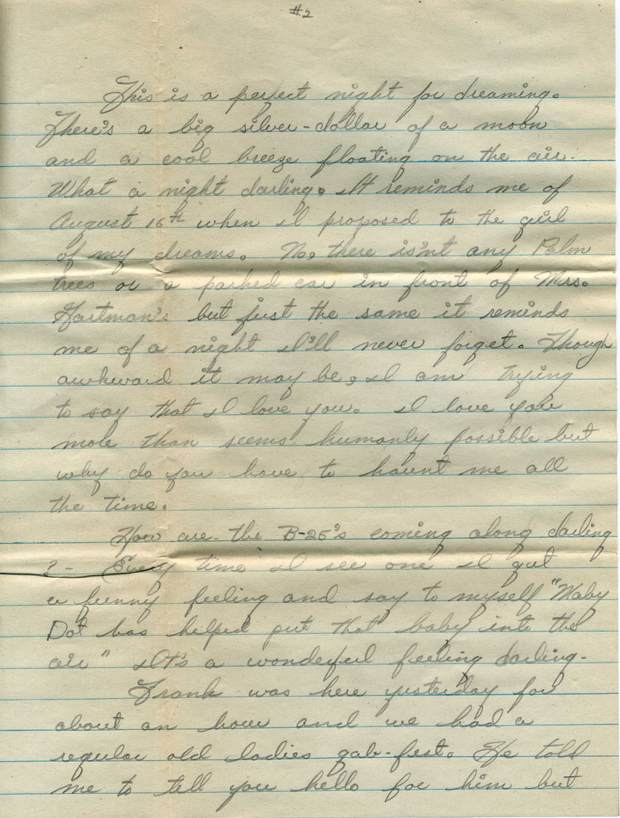 #2
This is a perfect night for dreaming.
There's a big silver-dollar of a moon
and a cool breeze floating on the air.
What a night darling. It reminds me of
August 16th when I proposed to the girl
of my dreams. No, there isn't any Palm
trees or a parked car in front of Mrs.
Hartman's but just the same it reminds
me of a night I'll never forget. Though
awkward it may be, I am trying
to say that I love you. I love you
more than seems humanly possible but
why do you have to haunt me all
the time.
How are the B-25's coming along darling
? - Every time I see one I get
a funny feeling and say to myself "Maby
Dot has helped put that baby into the
air" It's a wonderful feeling darling-
Frank was here yesterday for
about an hour and we had a
regular old ladies gab-fest. He told
me to tell you hello for him but